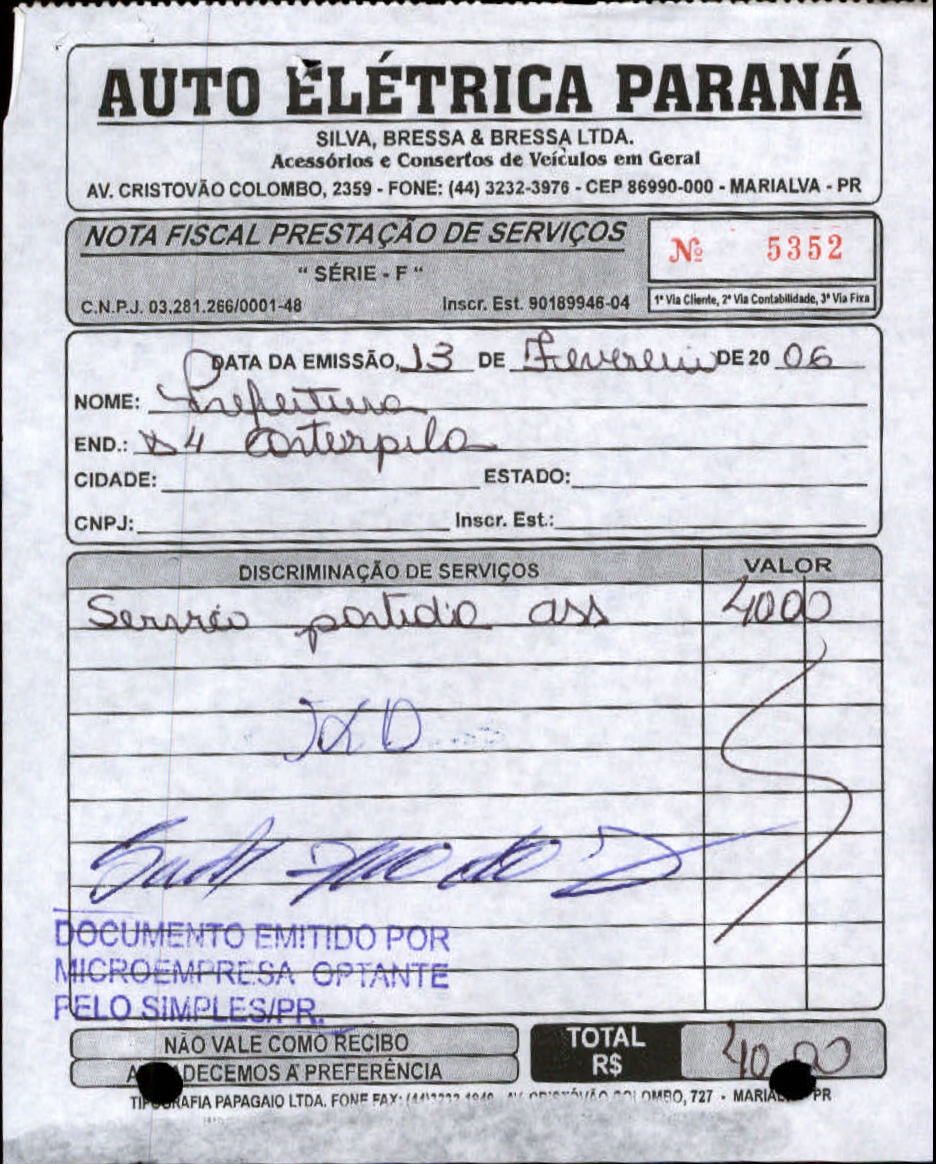 AUTO ELÉTRICA PARANÁ
SILVA, BRESSA & BRESSA LTDA.
Acessórios e Consertos de Veículos em Geral
AV. CRISTOVÃO COLOMBO, 2359 - FONE: (44) 3232-3976 - CEP 86990-000 - MARIALVA - PR
NOTA FISCAL PRESTAÇÃO DE SERVIÇOS
Nº 5352
" SÉRIE - F "
C.N.P.J. 03.281.266/0001-48 Inscr. Est. 90189946-04
1ª Via Cliente, 2ª Via Contabilidade, 3ª Via Fixa
DATA DA EMISSÃO, 13 DE Fevereiro DE 20 06
NOME: Prefeitura
END.: D4
CIDADE: ESTADO:
CNPJ: Inscr. Est.:
DISCRIMINAÇÃO DE SERVIÇOS VALOR
partida 40 00
DOCUMENTO EMITIDO POR
MICROEMPRESA OPTANTE
PELO SIMPLES/PR.
NÃO VALE COMO RECIBO
DECEMOS A PREFERÊNCIA
TOTAL
R$ 40.00
TIPOGRAFIA PAPAGAIO LTDA. FONE FAX: COLOMBO, 727 - PR